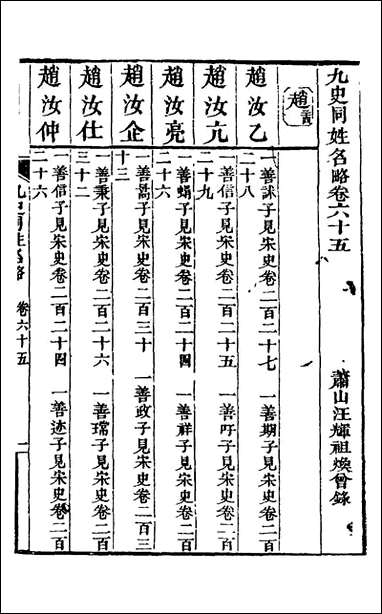 九史同姓名略卷六十五
蕭山汪輝祖煥曾錄
趙
趙汝乙
一善詠子見宋史卷二百二十七 一善期子見宋史卷二百
二十八
趙汝亢
一善信子見宋史卷二百二十五 一善吁子見宋史卷二百
二十九
趙汝亮
一善蝟子見宋史卷二百二十四 一善祥子見宋史卷二百
二十六
趙汝企
一善薷子見宋史卷二百三十 一善政子見宋史卷二百三
十三
趙汝仕
一善秉子見宋史卷二百二十六 一善瑺子見宋史卷二百
三十二
趙汝仲
一善信子見宋史卷二百二十四 一善迹子見宋史卷二百
二十六
九史同姓名略 卷六十五 一